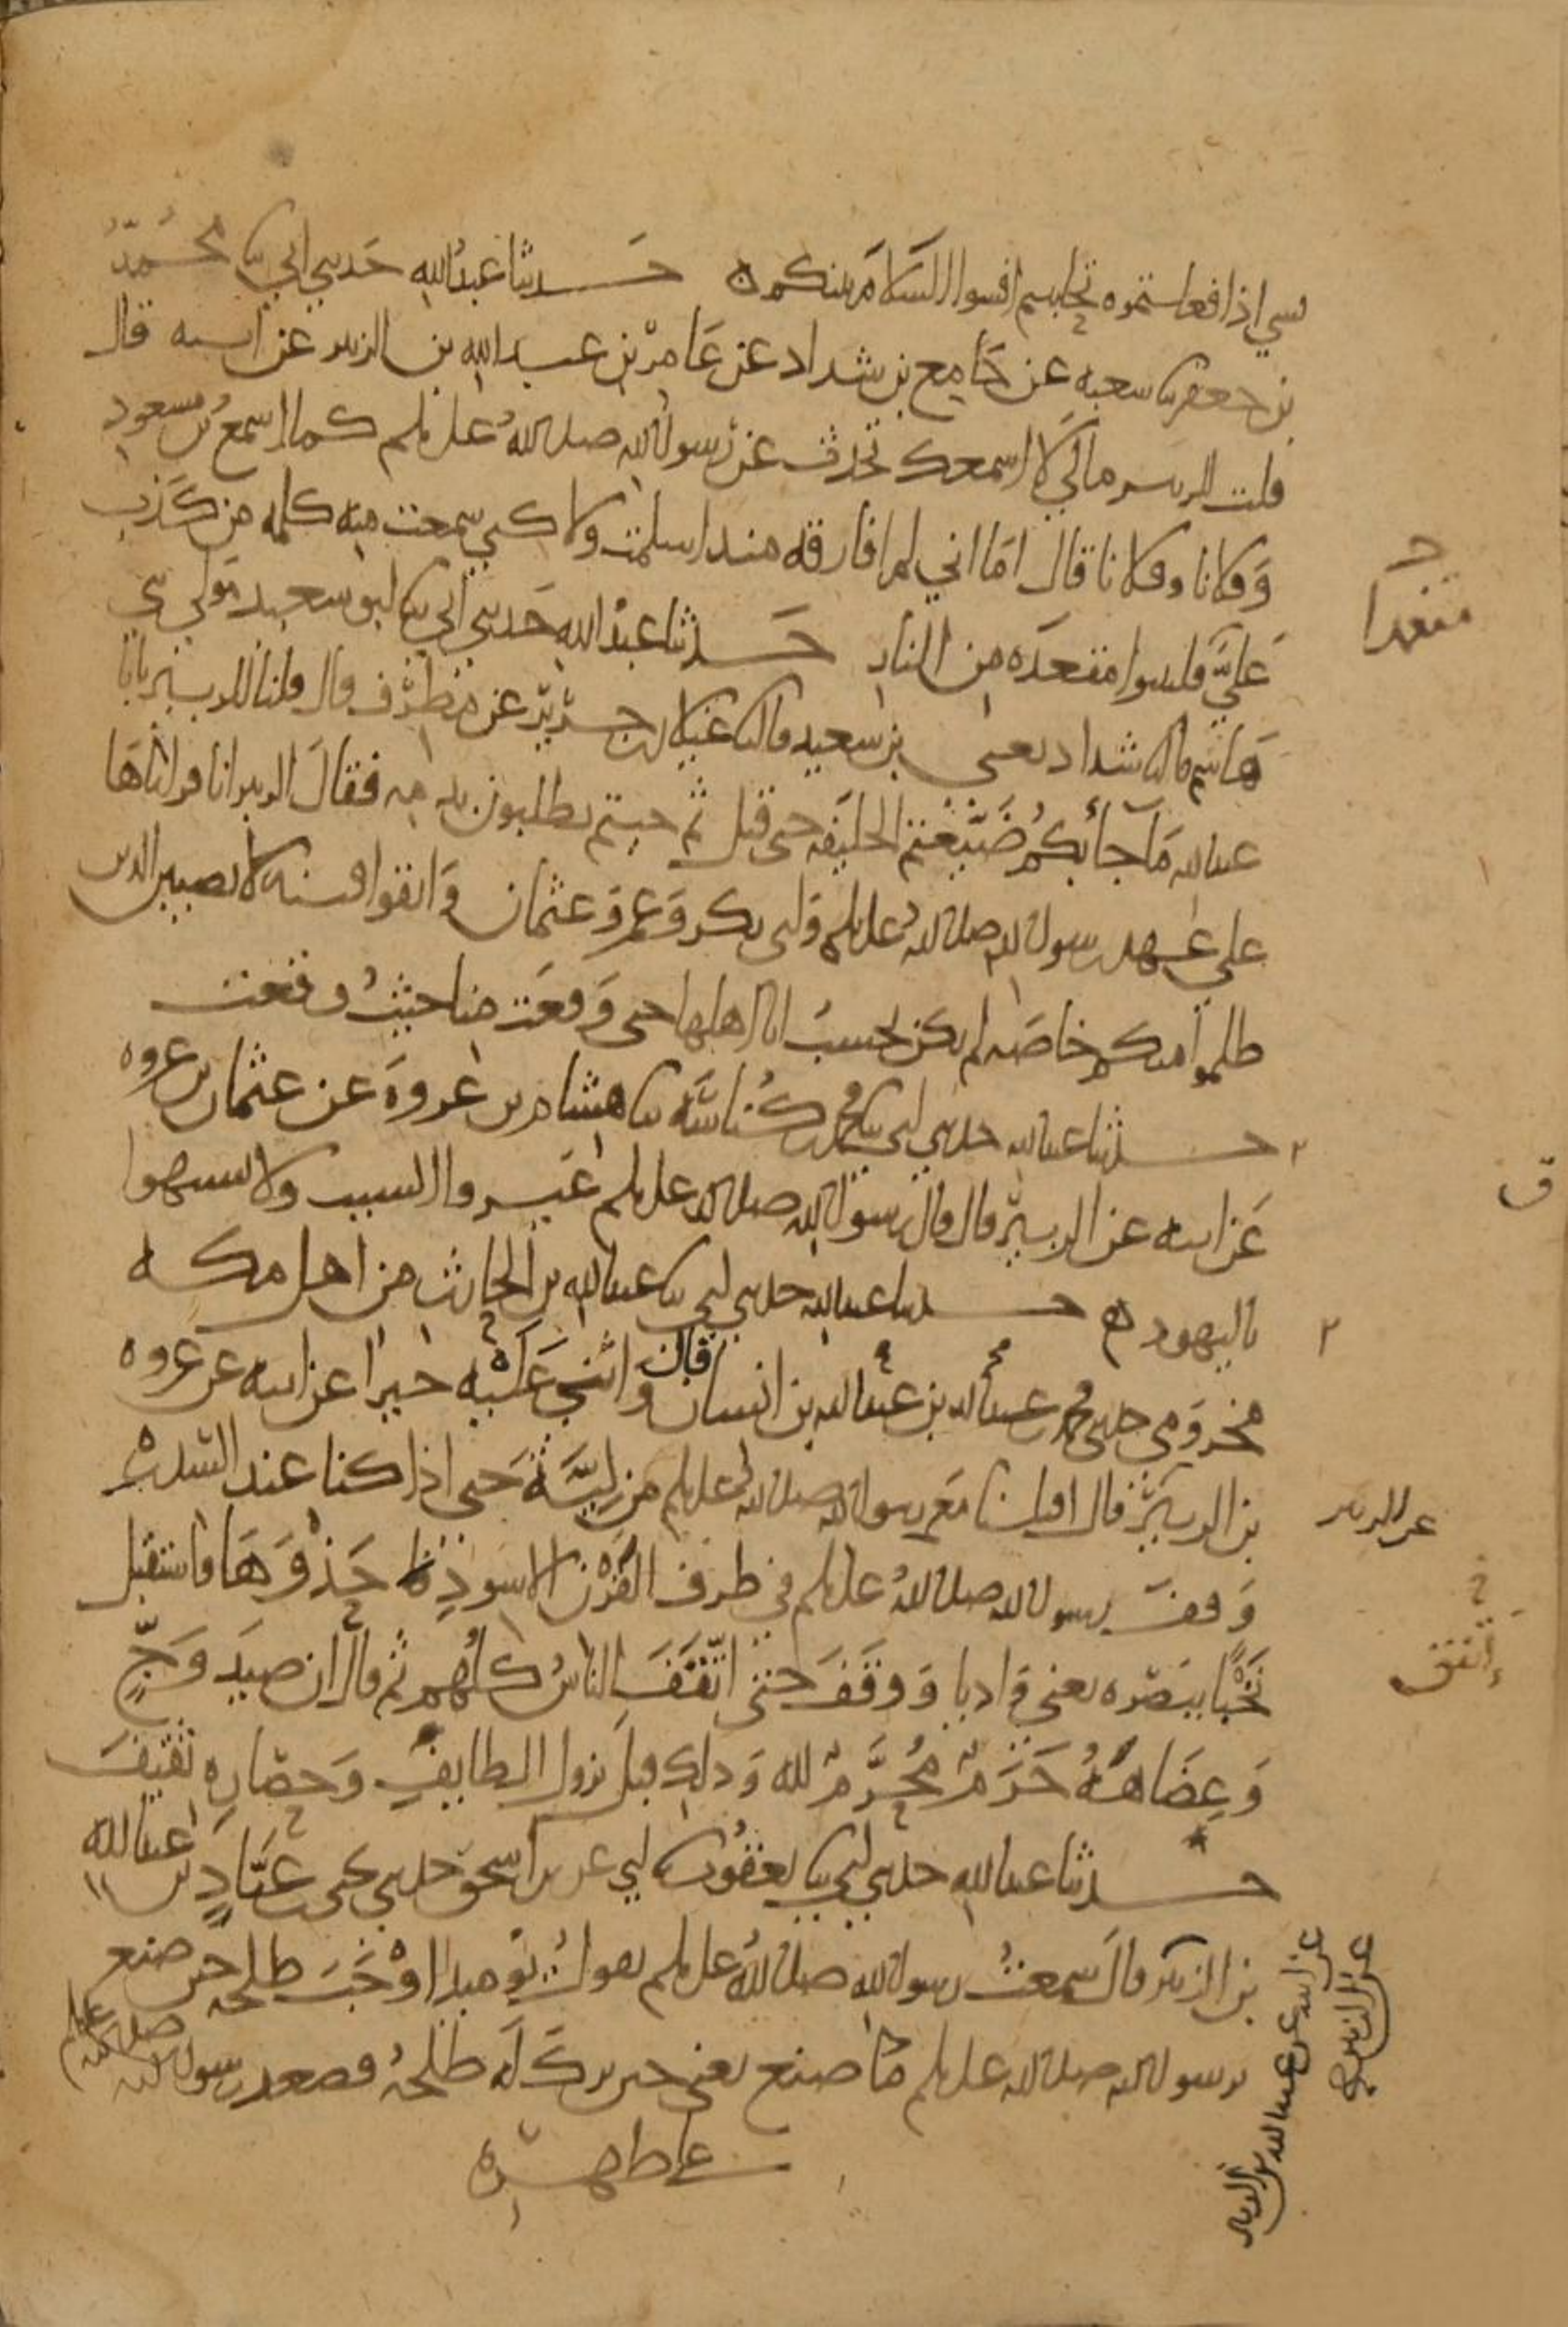 بشي اذا فعلتموه تحاببتم افشوا السلام بينكم ه حدثنا عبد الله حدثني ابي ثنا محمد
بن جعفر ثنا شعبه عن جامع بن شداد عن عامر بن عبد الله بن الزبير عن ابيه قال
قلت للزبير مالي لا اسمعك تحدث عن رسول الله صلى الله عليه وسلم كما اسمع ابن مسعود
وفلانا وفلانا قال اما اني لم افارقه منذ اسلمت ولاكني سمعت منه كلمه من كذب
علي فليتبوا مقعده من النار حدثنا عبد الله حدثني ابي ثنا ابو سعيد مولى بني
هاشم قال ثنا شداد يعني بن سعيد قال ثنا غيلان بن جرير عن مطرف قال قلنا للزبير يابا
عبد الله ما جا بكم ضيعتم الخليفه حتى قتل ثم جيتم تطلبون بدمه فقال الزبير انا قراناها
على عهد رسول الله صلى الله عليه وسلم وابي بكر وعمر وعثمان واتقوا فتنه لا تصيبن الذين
ظلموا منكم خاصه لم نكن نحسب انا اهلها حتى وقعت منا حيث وقعت
حدثنا عبد الله حدثني ابي ثنا محمد بن كناسه ثنا هشام بن عروه عن عثمان بن عروه
عن ابيه عن الزبير قال قال رسول الله صلى الله عليه وسلم غيروا الشيب ولا تشبهوا
باليهود ه حدثنا عبد الله حدثني ابي ثنا عبد الله بن الحارث من اهل مكه
مخزومي حدثني محمد بن عبد الله بن عبد الله بن انسان قال واثنى عليه خيرا عن ابيه عن عروه
بن الزبير قال اقبلنا مع رسول الله صلى الله عليه وسلم من ليه حتى اذا كنا عند السدره
عن الزبير
وقف رسول الله صلى الله عليه وسلم في طرف القرن الاسود حذوها فاستقبل
نخبا ببصره يعني واديا ووقف حتى اتفقف الناس كلهم ثم قال ان صيد وج
وعضاهه حرم محرم لله وذلك قبل نزوله الطايف وحصاره ثقيف
حدثنا عبد الله حدثني ابي ثنا يعقوب ثنا ابي عن بن اسحق حدثني يحيى بن عباد بن عبد الله
بن الزبير قال سمعت رسول الله صلى الله عليه وسلم يقول يوميذ اوجب طلحه حين صنع
برسول الله صلى الله عليه وسلم ما صنع يعني حين برك له طلحه فصعد رسول الله صلى الله عليه وسلم
على ظهره
عن ابيه عن عبد الله بن الزبير
عن الزبير